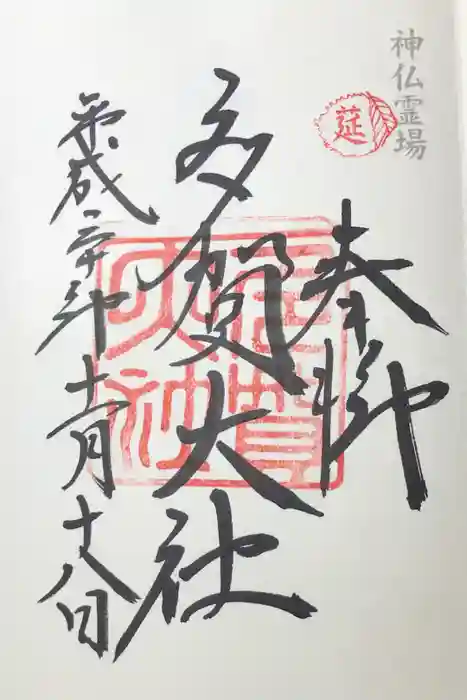 神仏霊場
莚
奉拝
多賀大社
多賀
大社
平成二十年十一月十八日